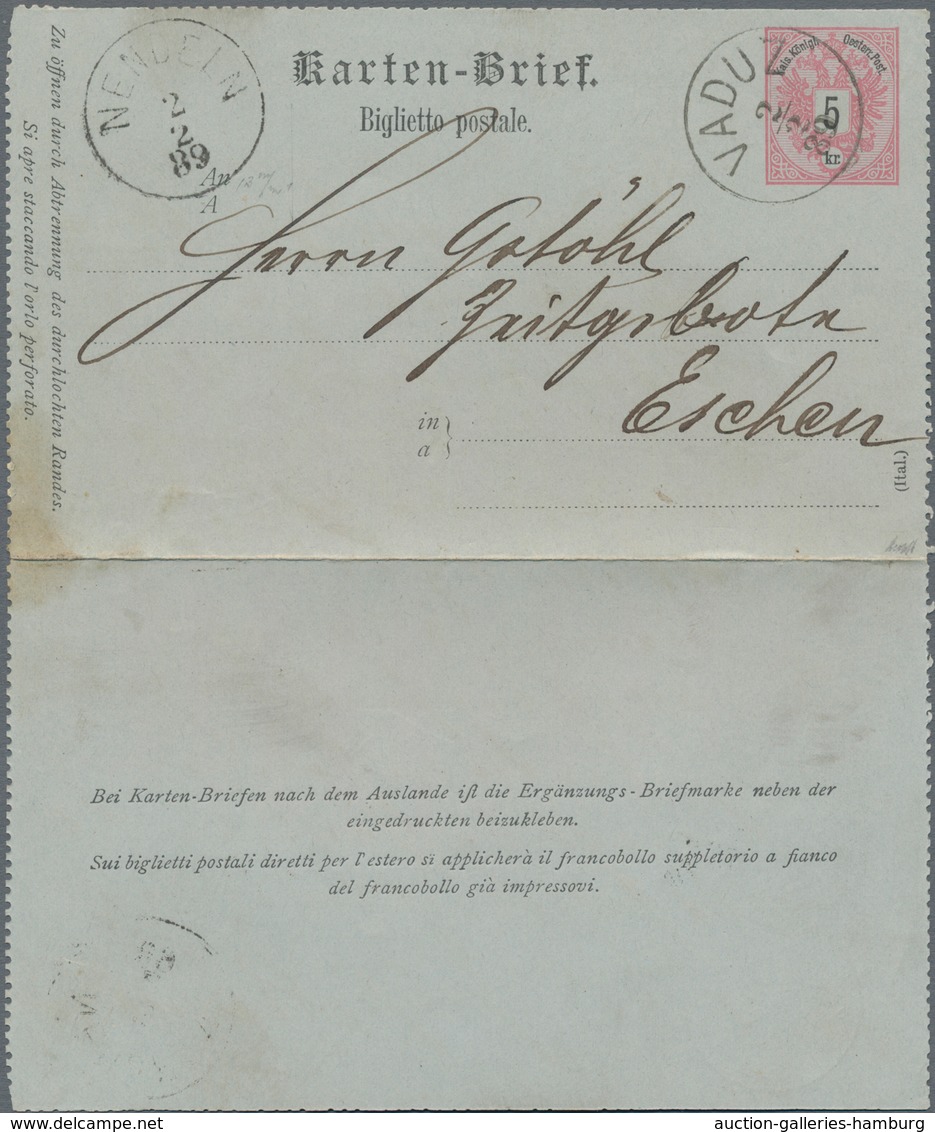 Zu öffnen durch Abtrennung des durchlochten Randes.
Si apre staccando l'orlo perforato.
NENDELN
2
2
89
Karten-Brief.
Biglietto postale.
VADUZ
2/2/89
Kais. Königl. Oesterr. Post.
5
kr.
An
A
Herrn Gstöhl
Zeitgsbote
in
a
Eschen
(Ital.)
Bei Karten-Briefen nach dem Auslande iſt die Ergänzungs-Briefmarke neben der
eingedruckten beizukleben.
Sui biglietti postali diretti per l'estero si applicherà il francobollo suppletorio a fianco
del francobollo già impressovi.
auction-galleries-hamburg